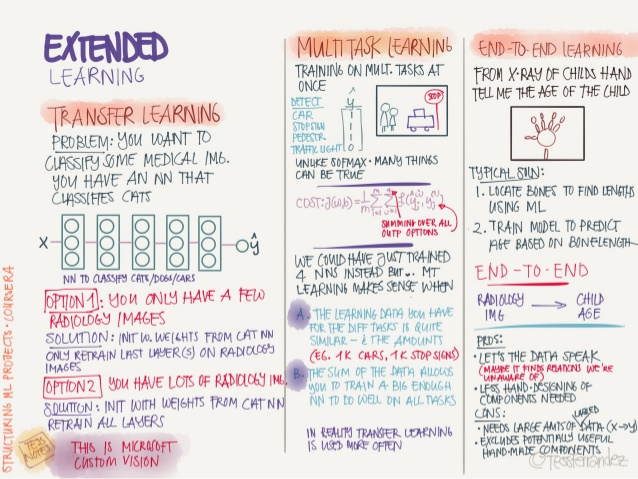 EXTENDED
LEARNING
TRANSFER LEARNING
PROBLEM: YOU WANT TO
CLASSIFY SOME MEDICAL IMG.
YOU HAVE AN NN THAT
CLASSIFIES CATS
X
ŷ
NN TO CLASSIFY CATS/DOGS/CARS
OPTION 1: YOU ONLY HAVE A FEW
RADIOLOGY IMAGES
SOLUTION: INIT W. WEIGHTS FROM CAT NN
ONLY RETRAIN LAST LAYER(S) ON RADIOLOGY
IMAGES
OPTION 2 YOU HAVE LOTS OF RADIOLOGY IMG.
SOLUTION: INIT WITH WEIGHTS FROM CAT NN
RETRAIN ALL LAYERS
THIS IS MICROSOFT
CUSTOM VISION
STRUCTURING ML PROJECTS · COURSERA
MULTITASK LEARNING
TRAINING ON MULT. TASKS AT
ONCE
DETECT
CAR
STOP SIGN
PEDESTR.
TRAFFIC LIGHT
ŷ
STOP
UNLIKE SOFMAX · MANY THINGS
CAN BE TRUE
SUMMING OVER ALL
OUTP OPTIONS
WE COULD HAVE JUST TRAINED
4 NNS INSTEAD BUT... MT
LEARNING MAKES SENSE WHEN
A. THE LEARNING DATA YOU HAVE
FOR THE DIFF TASKS IS QUITE
SIMILAR – & THE AMOUNTS
(EG. 1K CARS, 1K STOP SIGNS)
B. THE SUM OF THE DATA ALLOWS
YOU TO TRAIN A BIG ENOUGH
NN TO DO WELL ON ALL TASKS
IN REALITY TRANSFER LEARNING
IS USED MORE OFTEN
END-TO-END LEARNING
FROM X-RAY OF CHILDS HAND
TELL ME THE AGE OF THE CHILD
TYPICAL SOLN:
1. LOCATE BONES TO FIND LENGTHS
USING ML
2. TRAIN MODEL TO PREDICT
AGE BASED ON BONELENGTH
END-TO-END
RADIOLOGY
IMG
CHILD
AGE
PROS:
· LET'S THE DATA SPEAK
(MAYBE IT FINDS RELATIONS WE'RE
UNAWARE OF)
· LESS HAND-DESIGNING OF
COMPONENTS NEEDED
CONS:
LABLED
· NEEDS LARGE AMTS OF DATA (X→y)
· EXCLUDES POTENTIALLY USEFUL
HAND-MADE COMPONENTS